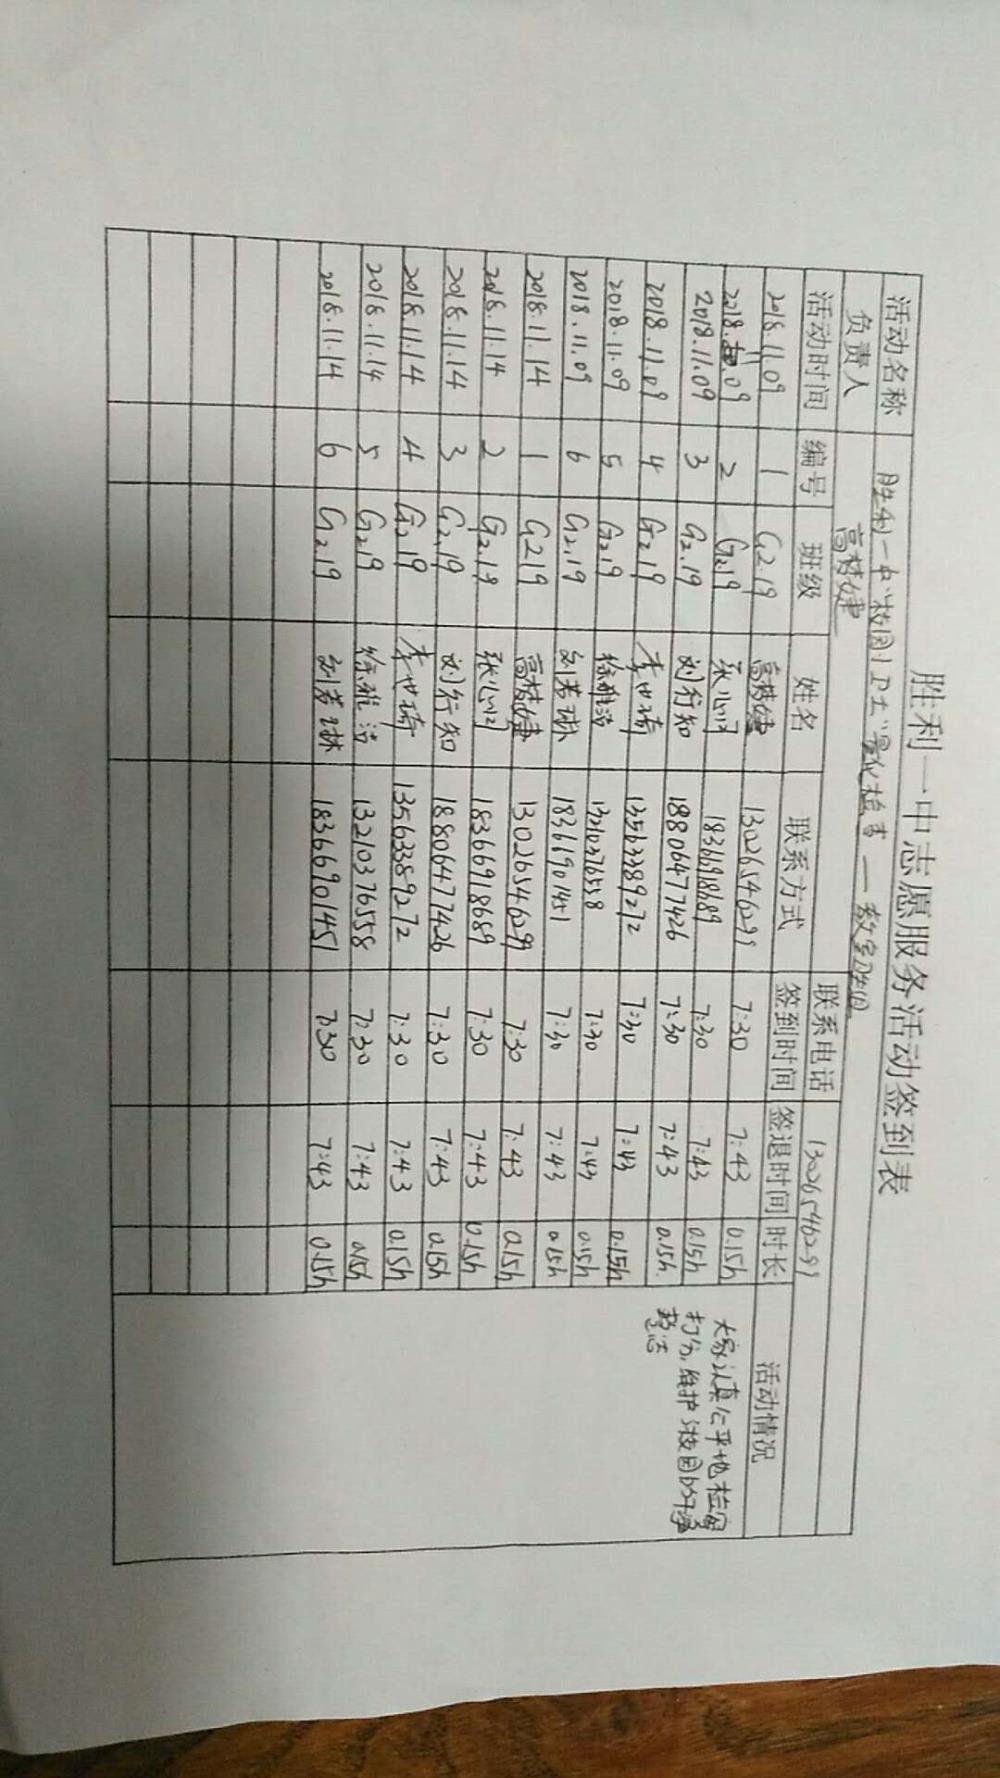 胜利一中志愿服务活动签到表
活动名称 胜利一中"校园卫士"量化检查—教室班组
负责人 高梦婕 联系电话 13026546299
活动时间 编号 班级 姓名 联系方式 签到时间 签退时间 时长 活动情况
2018.11.09 1 G2.19 高梦婕 13026546299 7:30 7:43 0.15h
2018.11.09 2 G2.19 18366918689 7:30 7:43 0.15h
2018.11.09 3 G2.19 刘行知 18806477426 7:30 7:43 0.15h
2018.11.09 4 G2.19 李世琦 13563389272 7:30 7:43 0.15h
2018.11.09 5 G2.19 13210376558 7:30 7:43 0.15h
2018.11.09 6 G2.19 18366901451 7:30 7:43 0.15h
2018.11.14 1 G2.19 高梦婕 13026546299 7:30 7:43 0.15h
2018.11.14 2 G2.19 18366918689 7:30 7:43 0.15h
2018.11.14 3 G2.19 刘行知 18806477426 7:30 7:43 0.15h
2018.11.14 4 G2.19 李世琦 13563389272 7:30 7:43 0.15h
2018.11.14 5 G2.19 13210376558 7:30 7:43 0.15h
2018.11.14 6 G2.19 18366901451 7:30 7:43 0.15h
大家认真公平地检查
打分,维护校园的干净
整洁